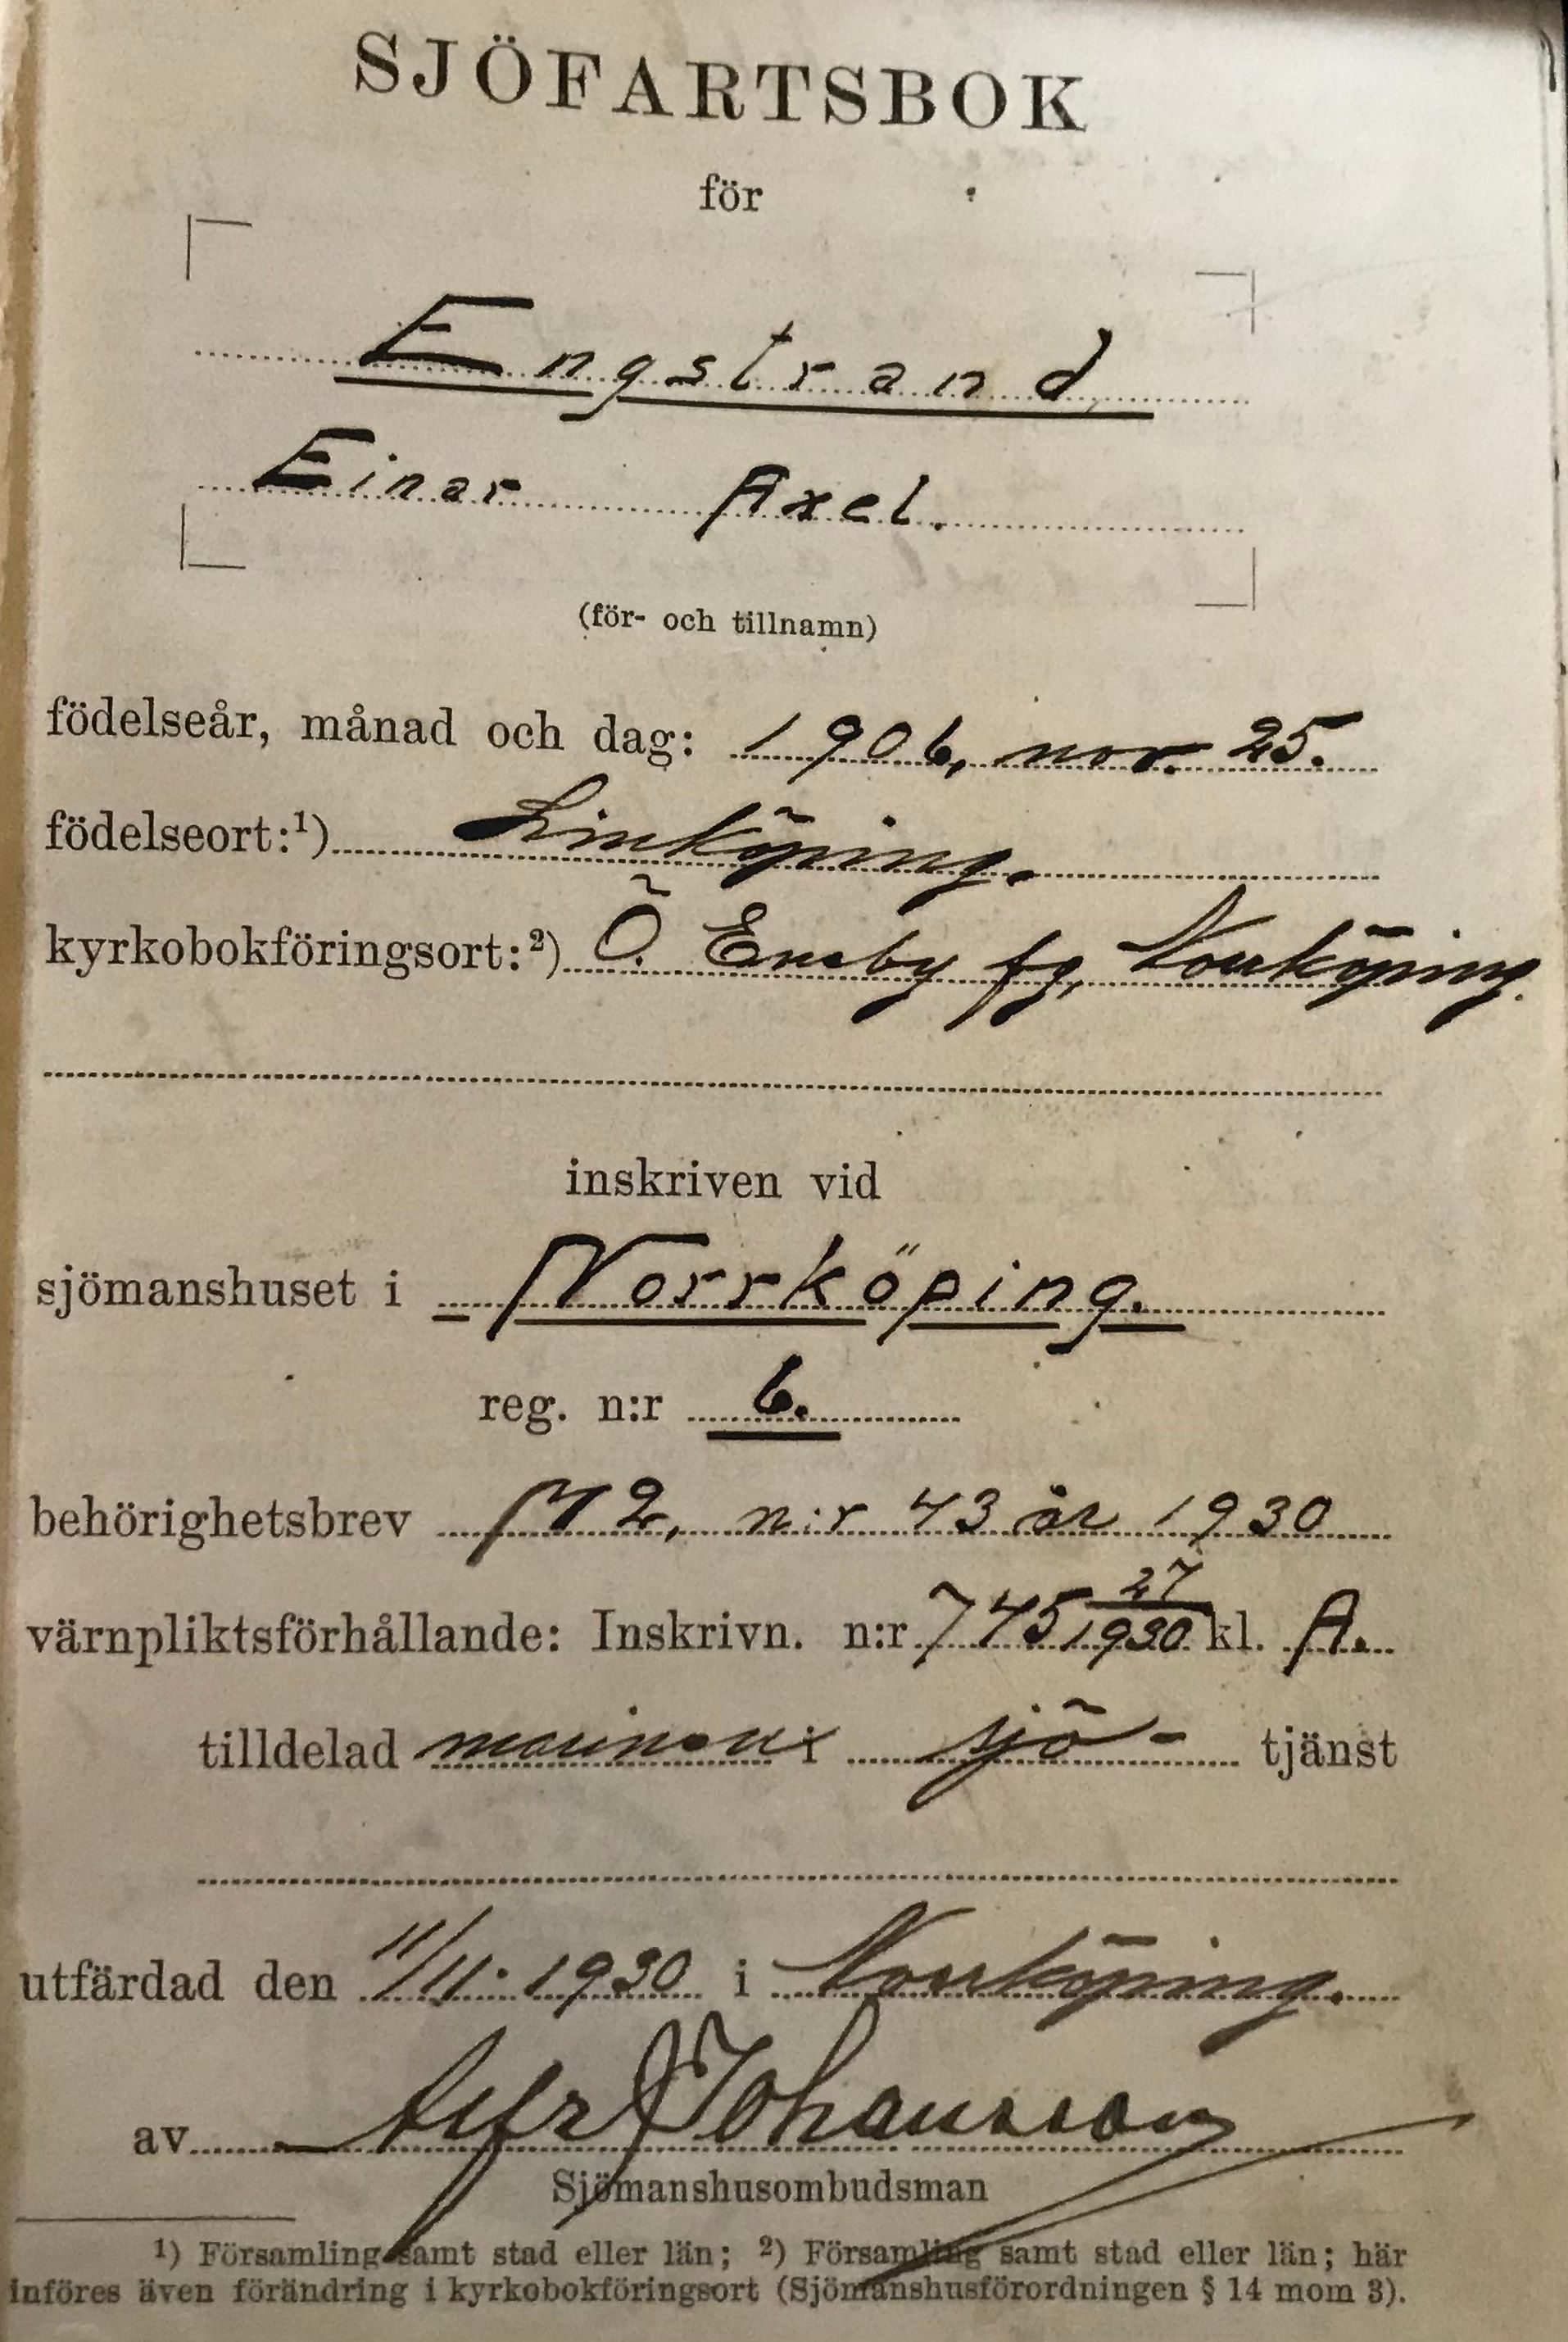 SJÖFARTSBOK
för
Engstrand,
Einar Axel.
(för- och tillnamn)
födelseår, månad och dag: 1906, nov. 25.
födelseort:¹) Linköping.
kyrkobokföringsort:²) Ö. Eneby fg, Norrköping.
inskriven vid
sjömanshuset i Norrköping.
reg. n:r 6.
behörighetsbrev M2, n:r 43 år 1930
värnpliktsförhållande: Inskrivn. n:r 745 27/1930 kl. A.
tilldelad marinen i sjö- tjänst
utfärdad den 11/11.1930 i Norrköping.
av Alfr Johansson
Sjömanshusombudsman
¹) Församling samt stad eller län; ²) Församling samt stad eller län; här
införes även förändring i kyrkobokföringsort (Sjömanshusförordningen § 14 mom 3).